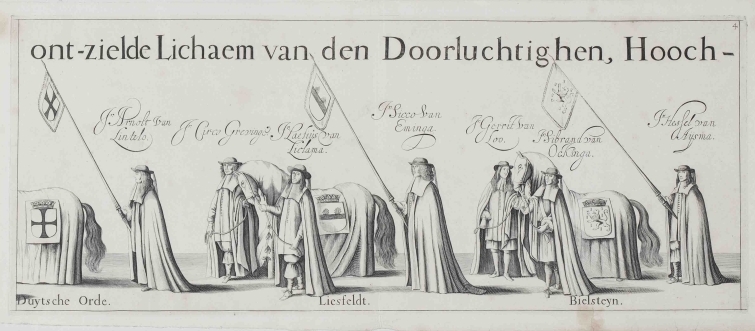 4
ont-zielde Lichaem van den Doorluchtighen, Hooch-
Jr. Arnolt van
Lintelo.
Jr. Circo Grevinge
Jr. Laetius van
Liclama.
Jr. Sicco van
Eminga.
Jr. Gerrit van
Loo.
Jr. Sibrand van
Ockinga.
Jr. Hessel van
Duytsche Orde.
Liesfeldt.
Bielsteyn.